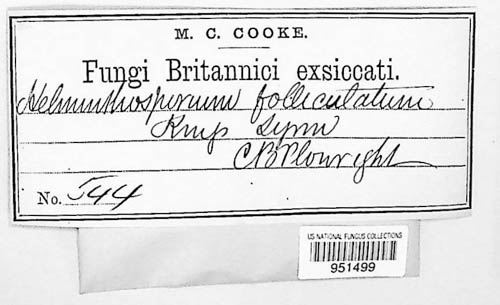 M. C. COOKE.
Fungi Britannici exsiccati.
Helminthosporium folliculatum
King's Lynn
C B Plowright
No. 544
US NATIONAL FUNGUS COLLECTIONS
951499